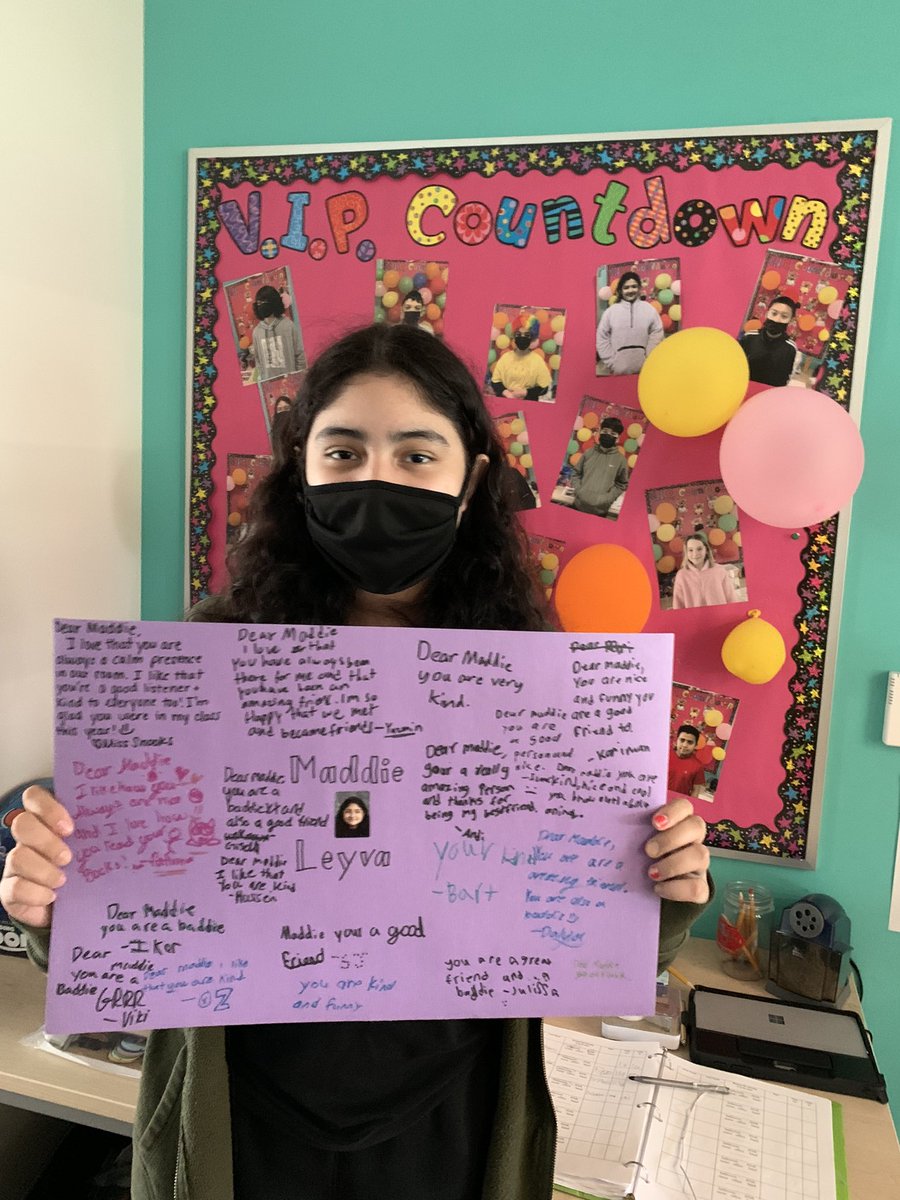 V.I.P. Countdown
Dear Maddie,
I love that you are
always a calm presence
in our room. I like that
you're a good listener +
kind to everyone too! I'm
glad you were in my class
this year!
Miss Snooks
Dear Maddie
i love that
you have always been
there for me and that
you have been an
amazing friend. I'm so
Happy that we met
and became friends - Yasmin
Dear Maddie
you are very
kind.
Dear maddie,
You are nice
and funny you
are a good
friend to.
Dear maddie
you are
a good
person and
nice.
Dear Maddie
I like how you
always are nice
and I love how
you read your
books!
Dear maddie
you are a
baddie and
also a good friend
Maddie
Leyva
Dear Maddie
I like that
you are kind
- Hussen
Dear maddie,
your a really
amazing person
and thanks for
being my bestfriend.
- Andi
your kind
- Bart
Dear Maddie,
You are a
amazing
You are also a
baddie
Dear Maddie
you are a baddie
- Iker
Dear
maddie
you are a
Baddie
GRRR
- Viki
Dear maddie i like
that you are kind
- Z
Maddie your a good
Friend - SJ
you are kind
and funny
you are a great
friend and a
baddie - Julissa